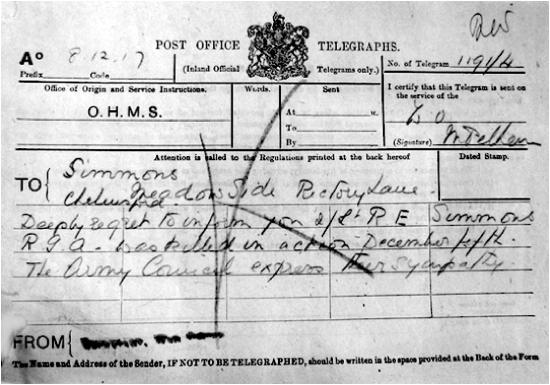 A° 8.12.17
POST OFFICE TELEGRAPHS.
(Inland Official Telegrams only.)
No. of Telegram 1191/4
Prefix Code
Office of Origin and Service Instructions.
Words.
Sent
I certify that this Telegram is sent on
the service of the
O.H.M.S.
At m.
To
By
(Signature)
Attention is called to the Regulations printed at the back hereof
Dated Stamp.
TO { Simmons
Meadow Side Rectory Lane
Chelmsford
Deeply regret to inform you 2/Lt R E Simmons
R G A. was killed in action December fifth.
The Army Council express their sympathy
FROM {
The Name and Address of the Sender, IF NOT TO BE TELEGRAPHED, should be written in the space provided at the Back of the Form